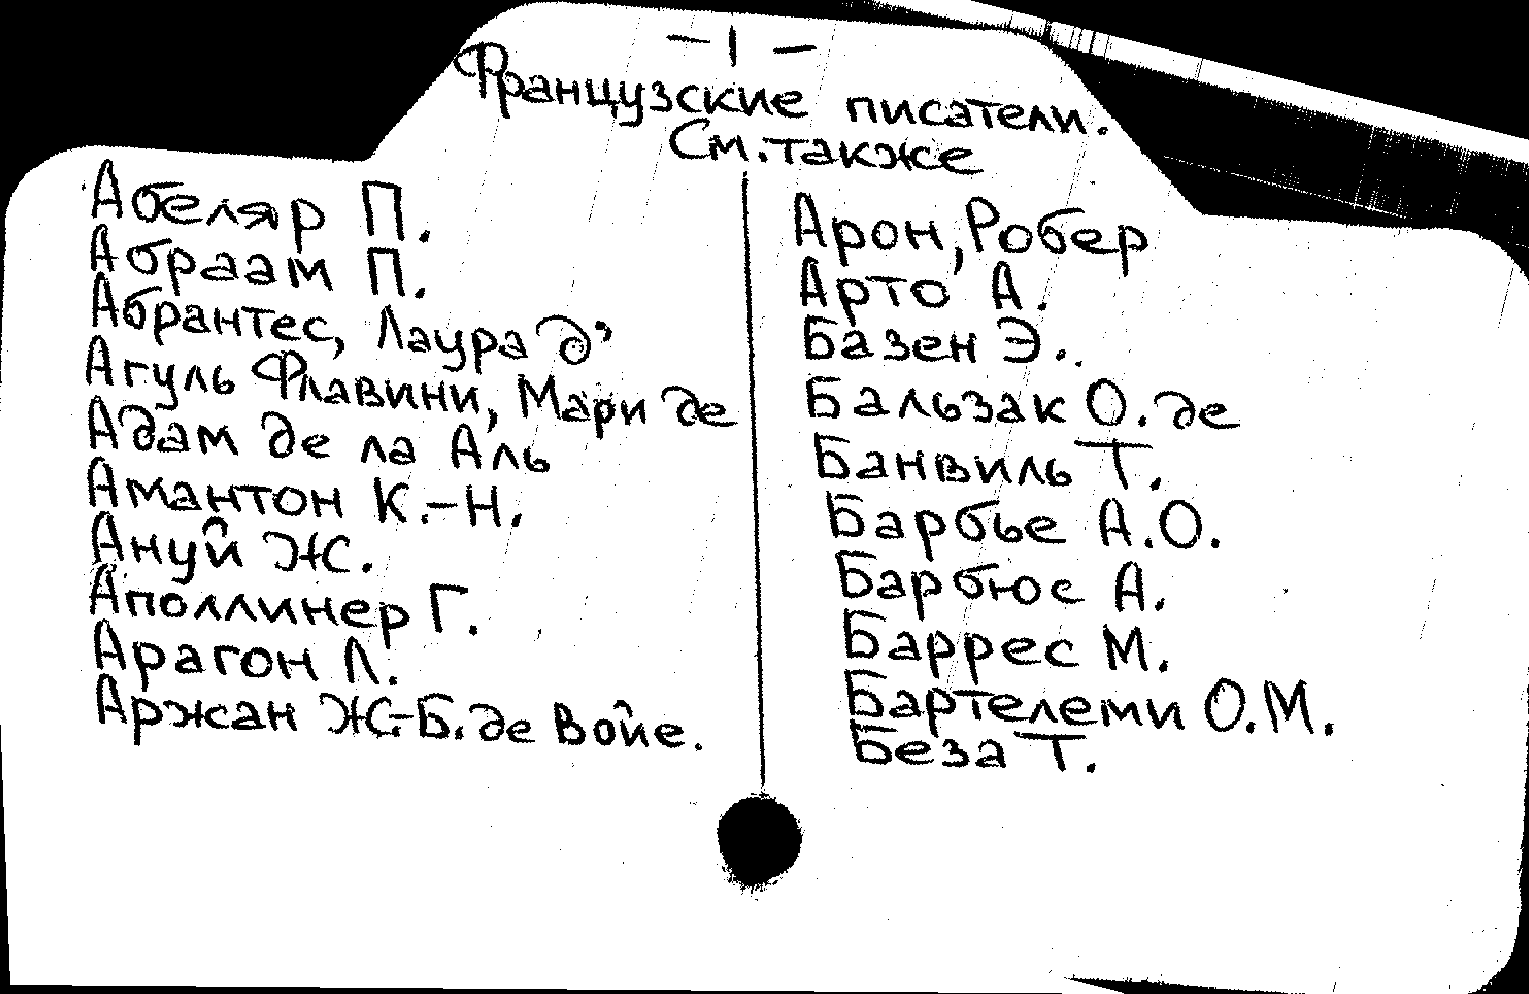 – 1 –
Французские писатели.
См. также
Абеляр П.
Абраам П.
Абрантес, Лаура д'
Агуль Флавини, Мари де
Адам де ла Аль
Амантон К.-Н.
Ануй Ж.
Аполлинер Г.
Арагон Л.
Аржан Ж.-Б. де Войе.
Арон, Робер
Арто А.
Базен Э.
Бальзак О. де
Банвиль Т.
Барбье А.О.
Барбюс А.
Баррес М.
Бартелеми О.М.
Беза Т.